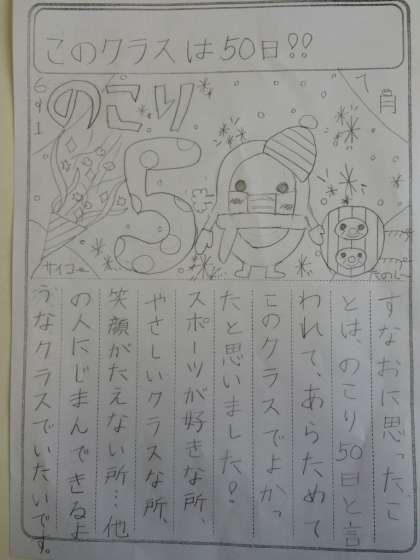 このクラスは50日!!
のこり
5
サイコー
たのしー
すなおに思ったこ
とは、のこり50日と言
われて、あらためて
このクラスでよかっ
たと思いました!
スポーツが好きな所、
やさしいクラスな所、
笑顔がたえない所…他
の人にじまんできるよ
うなクラスでいたいです。